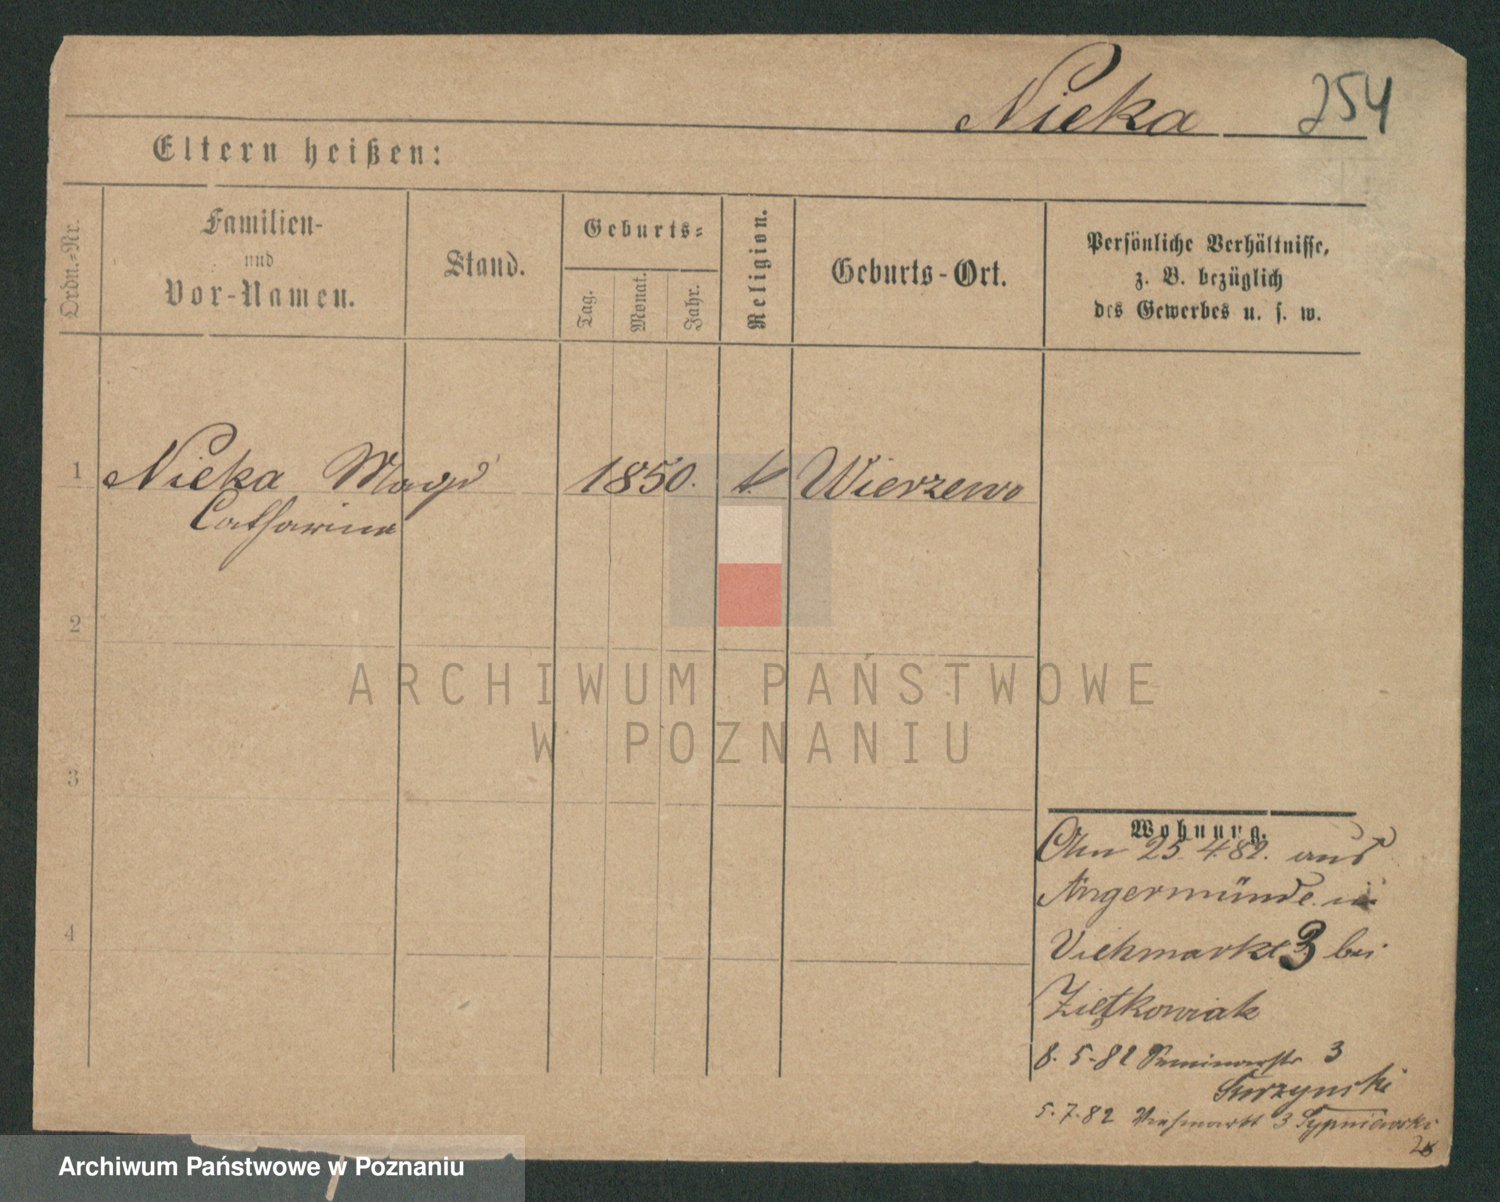 Nieka 254
Eltern heißen:
Ordn.-Nr.
Familien-
und
Vor-Namen.
Stand.
Geburts-
Tag.
Monat.
Jahr.
Religion.
Geburts-Ort.
Persönliche Verhältnisse,
z. B. bezüglich
des Gewerbes u. s. w.
1 Nieka Magd 1850. k Wierzewo
Catharina
2
3
4
ARCHIWUM PAŃSTWOWE
W POZNANIU
Wohnung.
25.4.82. aus
Angermünde
Viehmarkt 3 bei
Ziętkowiak
8.5.82 Seminarstr 3
Surzynski
5.7.82 Viehmarkt 3 Sypniewski
Archiwum Państwowe w Poznaniu